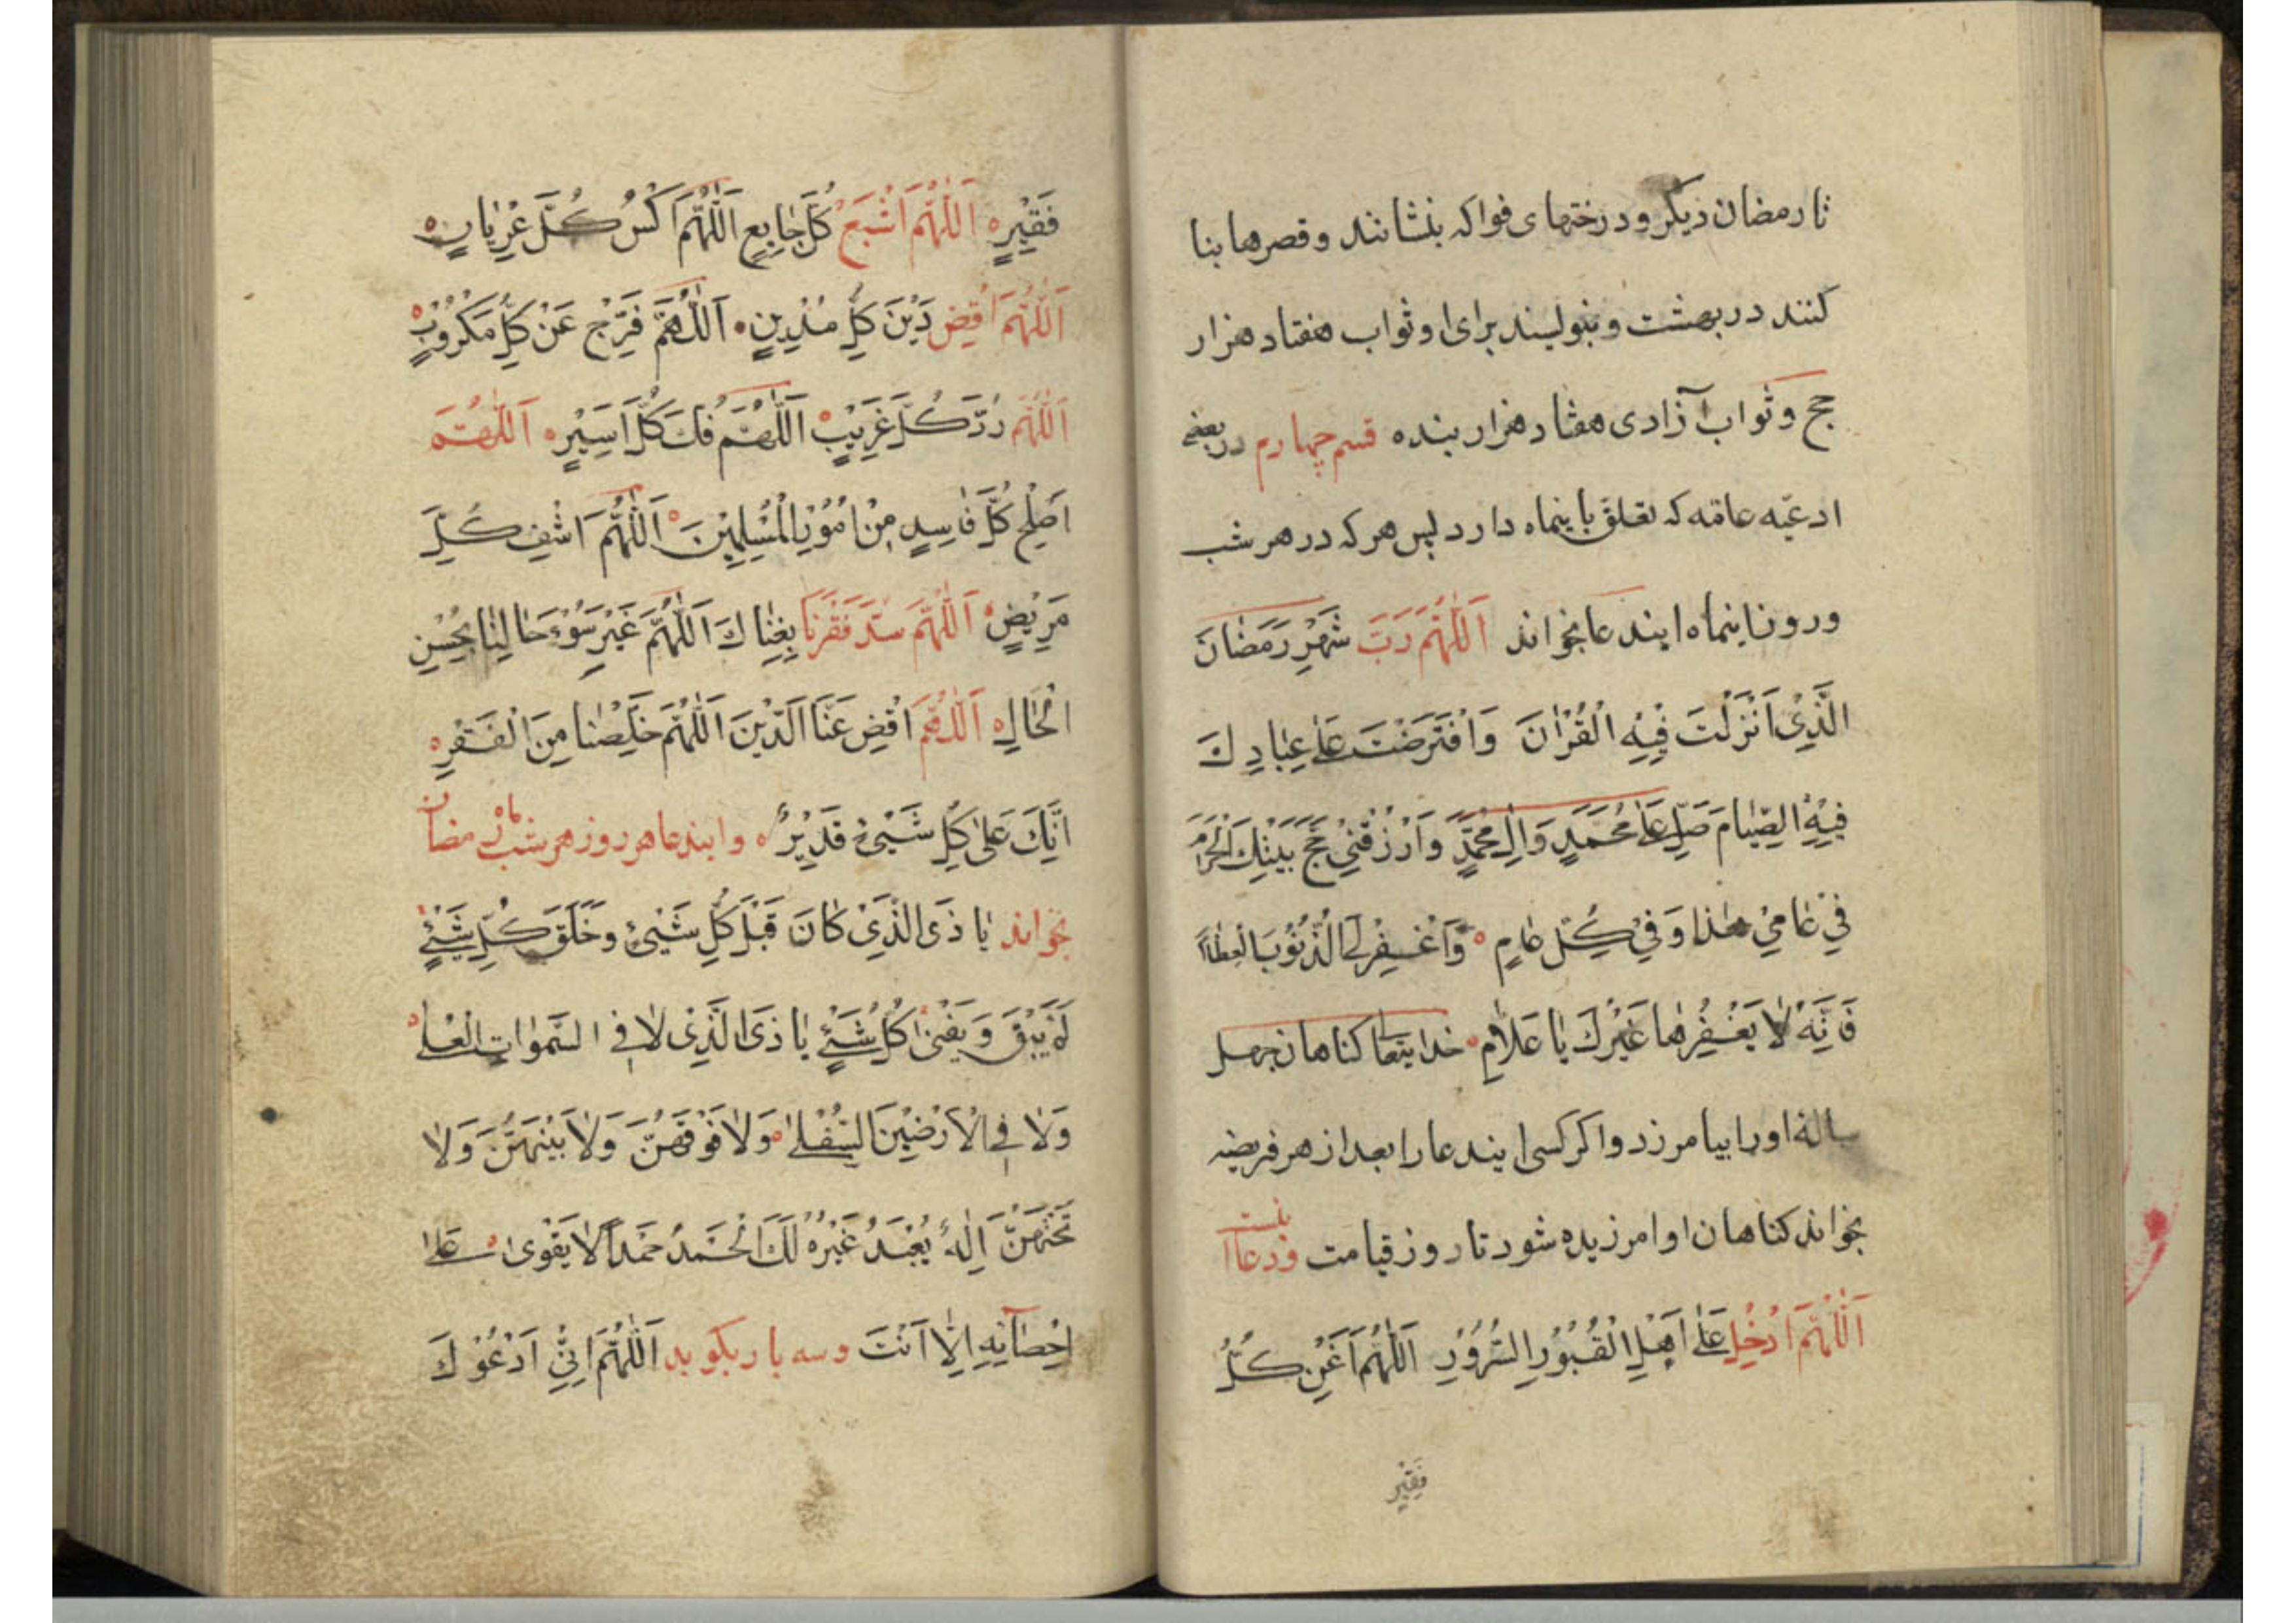 تا رمضان دیکر و درختهای فواکه بنشانند و قصرها بنا
کنند در بهشت و بنویسند برای او ثواب هفتاد هزار
حج و ثواب آزادی هفتاد هزار بنده قسم چهارم در بعضی
ادعیّه عامّه که تعلق باینماه دارد پس هر که در هر شب
و روز اینماه ایندعا بخواند اَللّٰهُمَّ رَبَّ شَهْرِ رَمَضٰانَ
الَّذِيْ اَنْزَلْتَ فِيْهِ الْقُرْاٰنَ وَافْتَرَضْتَ عَلٰى عِبٰادِكَ
فِيْهِ الصِّيٰامَ صَلِّ عَلٰى مُحَمَّدٍ وَاٰلِ مُحَمَّدٍ وَارْزُقْنِيْ حَجَّ بَيْتِكَ الْحَرٰامَ
فِيْ عٰامِيْ هٰذٰا وَفِيْ كُلِّ عٰامٍ وَاغْفِرْ لِيَ الذُّنُوْبَ الْعِظٰامَ
فَاِنَّهُ لٰا يَغْفِرُهٰا غَيْرُكَ يٰا عَلّٰامِ خدایتعا کناهان چهل
ساله او را بیامرزد و اکر کسی ایندعا را بعد از هر فریضه
بخواند کناهان او امرزیده شود تا روز قیامت و دعا اینست
اَللّٰهُمَّ اَدْخِلِ عَلٰى اَهْلِ الْقُبُوْرِ السُّرُوْرِ اَللّٰهُمَّ اَغْنِ كُلَّ
فَقِيْرٍ
فَقِيْرٍ اَللّٰهُمَّ اَشْبِعْ كُلَّ جٰايِعٍ اَللّٰهُمَّ اكْسُ كُلَّ عُرْيٰانٍ
اَللّٰهُمَّ اقْضِ دَيْنَ كُلِّ مُدْيِنٍ اَللّٰهُمَّ فَرِّجْ عَنْ كُلِّ مَكْرُوْبٍ
اَللّٰهُمَّ رُدَّ كُلَّ غَرِيْبٍ اَللّٰهُمَّ فُكَّ كُلَّ اَسِيْرٍ اَللّٰهُمَّ
اَصْلِحْ كُلَّ فٰاسِدٍ مِنْ اُمُوْرِ الْمُسْلِمِيْنَ اَللّٰهُمَّ اشْفِ كُلَّ
مَرِيْضٍ اَللّٰهُمَّ سُدَّ فَقْرَنٰا بِغِنٰاكَ اَللّٰهُمَّ غَيِّرْ سُوْءَ حٰالِنٰا بِحُسْنِ
الْحٰالِ اَللّٰهُمَّ اقْضِ عَنَّا الدَّيْنَ اَللّٰهُمَّ خَلِّصْنٰا مِنَ الْفَقْرِ
اِنَّكَ عَلٰى كُلِّ شَيْئٍ قَدِيْرٌ و ایندعا هر روز هر شب ماه رمضان
بخواند يٰا ذَى الَّذِيْ كٰانَ قَبْلَ كُلِّ شَيْئٍ وَخَلَقَ كُلِّ شَيْئٍ
ثُمَّ يَبْقَ وَيَفْنٰى كُلُّ شَيْئٍ يٰا ذَى الَّذِيْ لٰا فِى السَّمٰوٰاتِ الْعُلٰى
وَلٰا فِى الْاَرَضِيْنَ السُّفْلٰى وَلٰا فَوْقَهُنَّ وَلٰا بَيْنَهُنَّ وَلٰا
تَحْتَهُنَّ اِلٰهٌ يُعْبَدُ غَيْرُهُ لَكَ الْحَمْدُ حَمْداً لٰا يَقْوٰى عَلٰى
اِحْصٰآئِهِ اِلّٰا اَنْتَ و سه بار بکوید اَللّٰهُمَّ اِنِّيْ اَدْعُوْكَ